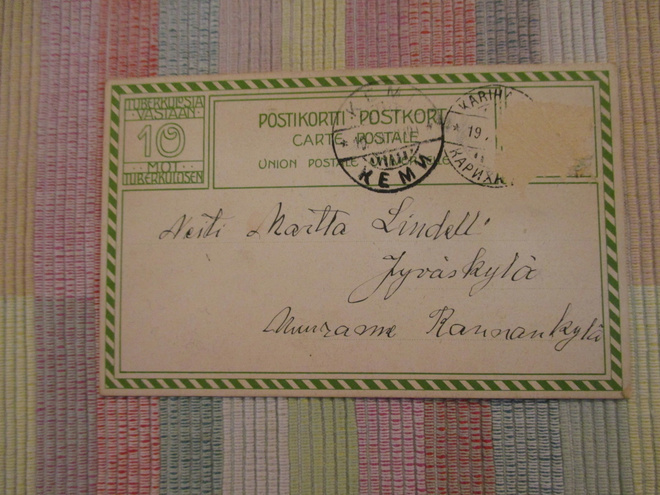 TUBERKULOSIA
VASTAAN
10
MOT
TUBERKULOSEN
POSTIKORTTI POSTKORT
CARTE POSTALE
UNION POSTALE
KEMI
KARIHA
19
КАРИХА
Neiti Martta Lindell
Jyväskylä
Muurame Rannankylä